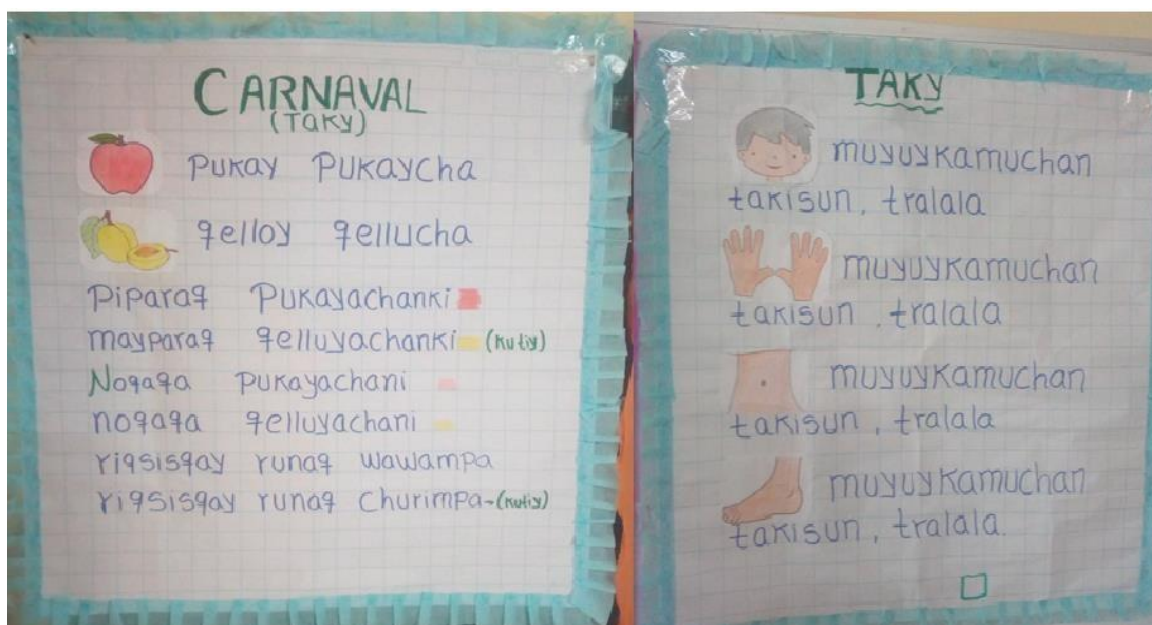 CARNAVAL
(TAKY)
Pukay Pukaycha
qelloy qellucha
Piparaq Pukayachanki
mayparaq qelluyachanki (kutiy)
Noqaqa pukayachani
noqaqa qelluyachani
riqsisqay runaq wawampa
riqsisqay runaq churimpa-(kutiy)
TAKY
muyuykamuchan
takisun, tralala
muyuykamuchan
takisun, tralala
muyuykamuchan
takisun, tralala
muyuykamuchan
takisun, tralala.